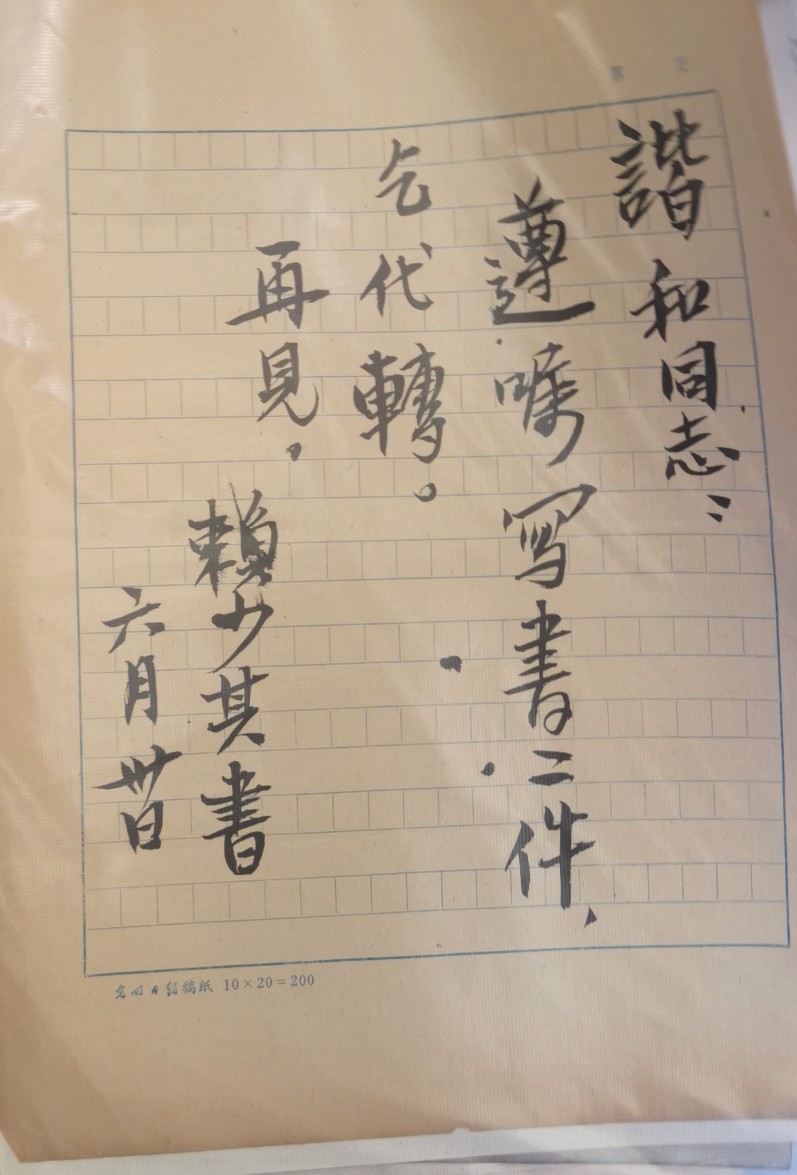 諧和同志：
遵嘱写書二件，
乞代轉。
再見，
賴少其書
六月卅日
光明日報稿紙 10×20=200